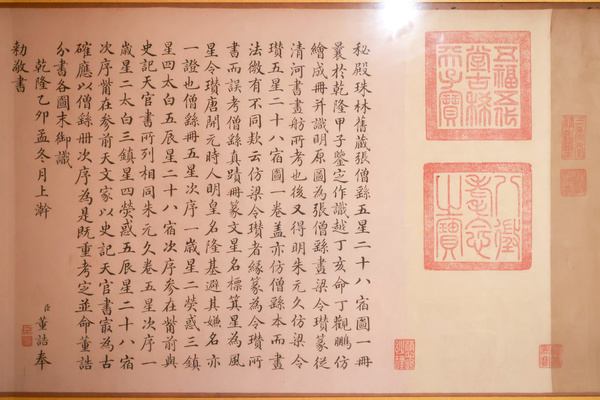 五福五代
堂古稀
天子寶
八徵
耄念
之寶
秘殿珠林舊藏張僧繇五星二十八宿圖一冊
曩於乾隆甲子鑒定作識越丁亥命丁觀鵬仿
繪成冊并識明原圖為張僧繇畫梁令瓚篆從
清河書畫舫所考也後又得明朱元久仿梁令
瓚五星二十八宿圖一卷盖亦仿僧繇本而畫
法微有不同款云仿梁令瓚者緣篆為令瓚所
書而誤考僧繇真蹟冊篆文星名標箕星為風
星令瓚唐開元時人明皇名隆基避其嫌名亦
一證也僧繇冊五星次序一歲星二熒惑三鎮
星四太白五辰星二十八宿次序參在觜前與
史記天官書所列相同朱元久卷五星次序一
歲星二太白三鎮星四熒惑五辰星二十八宿
次序觜在參前天文家以史記天官書㝡為古
確應以僧繇冊次序為是既重考定並命董誥
分書各圖末御識
乾隆乙卯孟冬月上澣
臣董誥奉
勅敬書